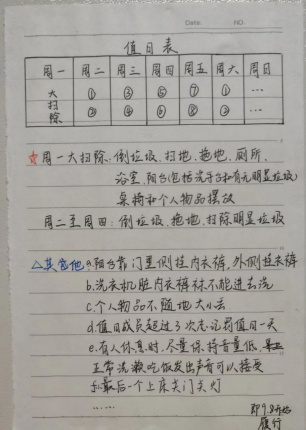 Date. NO.
值日表
周一 周二 周三 周四 周五 周六 周日
大扫除 ① ③ ⑤ ⑦ ① …
② ④ ⑥ ⑧ ② …
☆周一大扫除:倒垃圾、扫地、拖地、厕所、
浴室、阳台(包括洗手台和有无明显垃圾)
桌椅和个人物品摆放
周二至周四:倒垃圾、拖地、扫除明显垃圾
△其它他 a.阳台靠门里侧挂内衣裤,外侧挂衣裤
b.洗衣机脏内衣裤袜不能进去洗
c.个人物品不随地大小丢
d.值日成员超过3次忘记罚值日一天
e.有人休息时,尽量保持音量低,
正常洗漱吃饭发出声音可以接受
f.最后一个上床关门关灯
……
即9.8开始
履行